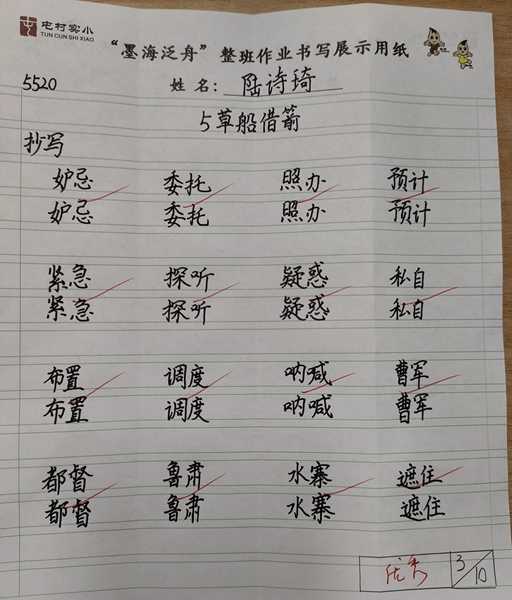 屯村实小
TUN CUN SHI XIAO
“墨海泛舟”整班作业书写展示用纸
5520 姓名：陆诗琦
5草船借箭
抄写
妒忌 委托 照办 预计
妒忌 委托 照办 预计
紧急 探听 疑惑 私自
紧急 探听 疑惑 私自
布置 调度 呐喊 曹军
布置 调度 呐喊 曹军
都督 鲁肃 水寨 遮住
都督 鲁肃 水寨 遮住
优秀 3/10